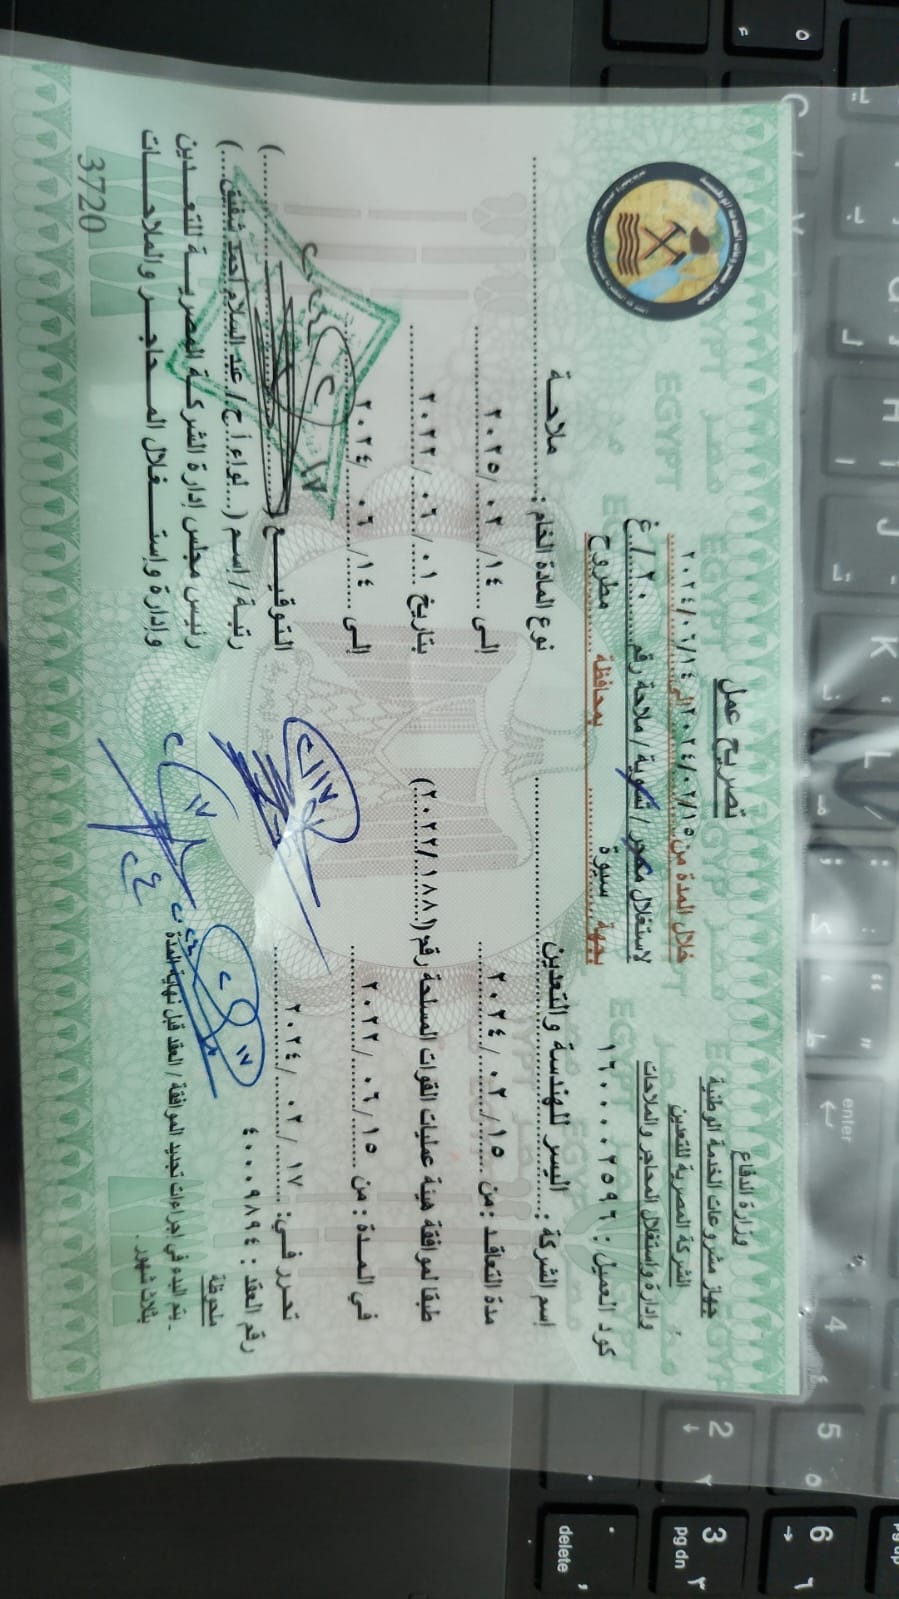 وزارة الدفاع
جهاز مشروعات الخدمة الوطنية
الشركة المصرية للتعدين
وإدارة واستغلال المحاجر والملاحات
كود العميل : ١٦٠٠٠٢٥٩٦
تصريح عمل
خلال المدة من ٢٠٢٤/٠٢/١٥ إلى ٢٠٢٤/٠٦/١٤
لاستغلال محجر / تشوينة / ملاحة رقم ٢٠ / غ
بجهة سيوة بمحافظة مطروح
إسم الشركة : اليسر للهندسة والتعدين نوع المادة الخام : ملاحة
مدة التعاقد : من ٢٠٢٤/٠٢/١٥ إلى ٢٠٢٥/٠٢/١٤
طبقا لموافقة هيئة عمليات القوات المسلحة رقم (٢٠٢٢/١٨٨١) بتاريخ ٢٠٢٢/٠٦/٠١
في المدة : من ٢٠٢٢/٠٦/١٥ إلى ٢٠٢٤/٠٦/١٤
تحرر في : ٢٠٢٤/٠٢/١٧ التوقيع (
رقم العقد : ٤٠٠٠٩٨٩٤
رتبة / إسم ( لواء أ ح / عبد السلام أحمد شفيق )
رئيس مجلس إدارة الشركة المصرية للتعدين
وإدارة وإستغلال المحاجر والملاحات
ملحوظة
ـ يتم البدء في اجراءات تجديد الموافقة / العقد قبل نهاية المدة
بثلاث شهور .
3720
EGYPT
enter
delete
pg dn